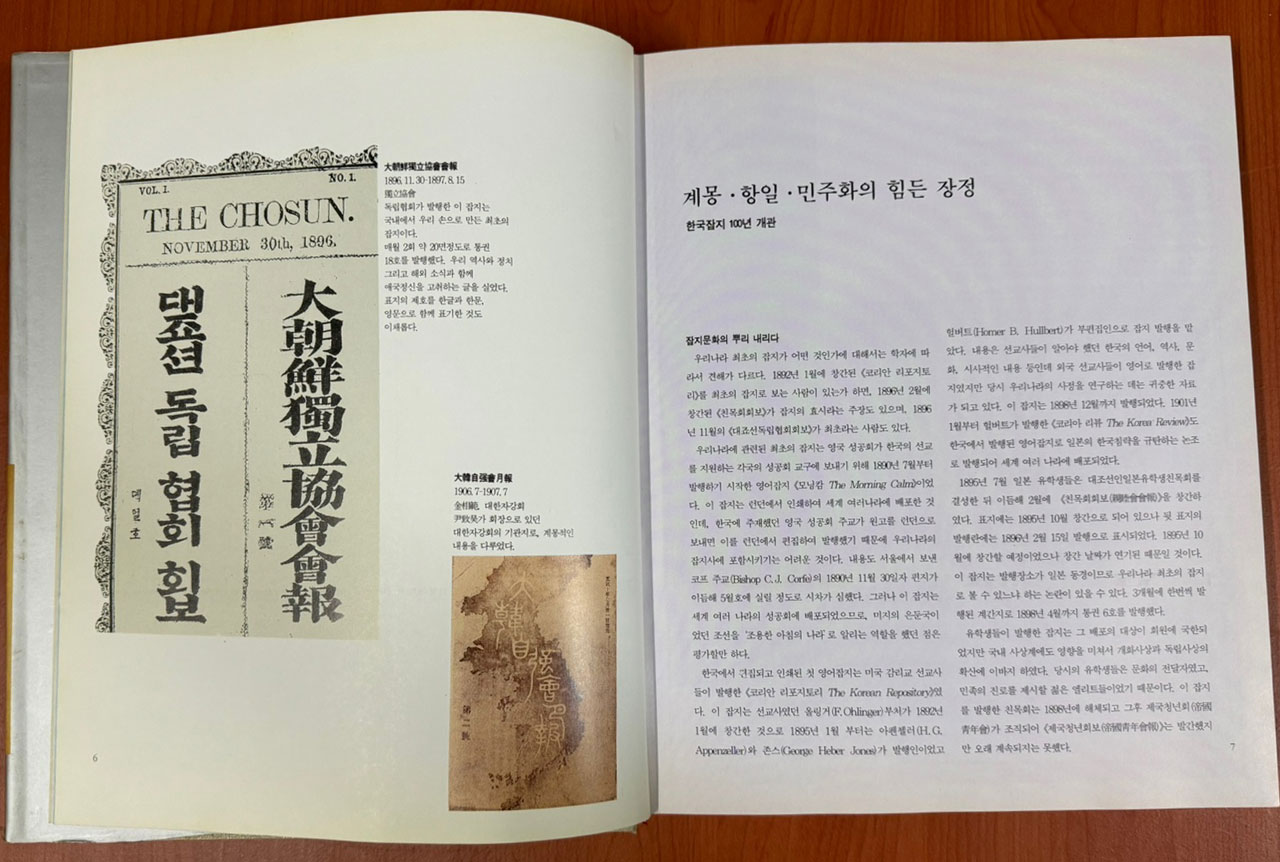 VOL. 1.
NO. 1.
THE CHOSUN.
NOVEMBER 30th, 1896.
大朝鮮獨立協會會報
第一號
대죠션 독립 협회 회보
뎨일호
大朝鮮獨立協會會報
1896. 11. 30-1897. 8. 15
獨立協會
독립협회가 발행한 이 잡지는
국내에서 우리 손으로 만든 최초의
잡지이다.
매월 2회 약 20면정도로 통권
18호를 발행했다. 우리 역사와 정치
그리고 해외 소식과 함께
애국정신을 고취하는 글을 실었다.
표지의 제호를 한글과 한문,
영문으로 함께 표기한 것도
이채롭다.
大韓自强會月報
1906. 7-1907. 7
대한자강회
尹致昊가 회장으로 있던
대한자강회의 기관지로, 계몽적인
내용을 다루었다.
大韓自强會月報
6
계몽·항일·민주화의 힘든 장정
한국잡지 100년 개관
잡지문화의 뿌리 내리다
우리나라 최초의 잡지가 어떤 것인가에 대해서는 학자에 따
라서 견해가 다르다. 1892년 1월에 창간된 《코리안 리포지토
리》를 최초의 잡지로 보는 사람이 있는가 하면, 1896년 2월에
창간된 《친목회회보》가 잡지의 효시라는 주장도 있으며, 1896
년 11월의 《대죠선독립협회회보》가 최초라는 사람도 있다.
우리나라에 관련된 최초의 잡지는 영국 성공회가 한국의 선교
를 지원하는 각국의 성공회 교구에 보내기 위해 1890년 7월부터
발행하기 시작한 영어잡지 《모닝캄 The Morning Calm》이었
다. 이 잡지는 런던에서 인쇄하여 세계 여러나라에 배포한 것
인데, 한국에 주재했던 영국 성공회 주교가 원고를 런던으로
보내면 이를 런던에서 편집하여 발행했기 때문에 우리나라의
잡지사에 포함시키기는 어려운 것이다. 내용도 서울에서 보낸
코프 주교(Bishop C. J. Corfe)의 1890년 11월 30일자 편지가
이듬해 5월호에 실릴 정도로 시차가 심했다. 그러나 이 잡지는
세계 여러 나라의 성공회에 배포되었으므로, 미지의 은둔국이
었던 조선을 '조용한 아침의 나라'로 알리는 역할을 했던 점은
평가할만 하다.
한국에서 편집되고 인쇄된 첫 영어잡지는 미국 감리교 선교사
들이 발행한 《코리안 리포지토리 The Korean Repository》였
다. 이 잡지는 선교사였던 올링거(F. Ohlinger) 부처가 1892년
1월에 창간한 것으로 1895년 1월 부터는 아펜젤러(H. G.
Appenzeller)와 존스(George Heber Jones)가 발행인이었고
헐버트(Homer B. Hullbert)가 부편집인으로 잡지 발행을 맡
았다. 내용은 선교사들이 알아야 했던 한국의 언어, 역사, 문
화, 시사적인 내용 등인데 외국 선교사들이 영어로 발행한 잡
지였지만 당시 우리나라의 사정을 연구하는 데는 귀중한 자료
가 되고 있다. 이 잡지는 1898년 12월까지 발행되었다. 1901년
1월부터 헐버트가 발행한 《코리아 리뷰 The Korea Review》도
한국에서 발행된 영어잡지로 일본의 한국침략을 규탄하는 논조
로 발행되어 세계 여러 나라에 배포되었다.
1895년 7월 일본 유학생들은 대조선인일본유학생친목회를
결성한 뒤 이듬해 2월에 《친목회회보(親睦會會報)》를 창간하
였다. 표지에는 1895년 10월 창간으로 되어 있으나 뒷 표지의
발행란에는 1896년 2월 15일 발행으로 표시되었다. 1895년 10
월에 창간할 예정이었으나 창간 날짜가 연기된 때문일 것이다.
이 잡지는 발행장소가 일본 동경이므로 우리나라 최초의 잡지
로 볼 수 있느냐 하는 논란이 있을 수 있다. 3개월에 한번씩 발
행된 계간지로 1898년 4월까지 통권 6호를 발행했다.
유학생들이 발행한 잡지는 그 배포의 대상이 회원에 국한되
었지만 국내 사상계에도 영향을 미쳐서 개화사상과 독립사상의
확산에 이바지 하였다. 당시의 유학생들은 문화의 전달자였고,
민족의 진로를 제시할 젊은 엘리트들이었기 때문이다. 이 잡지
를 발행한 친목회는 1898년에 해체되고 그후 제국청년회(帝國
靑年會)가 조직되어 《제국청년회보(帝國靑年會報)》는 발간했지
만 오래 계속되지는 못했다.
7